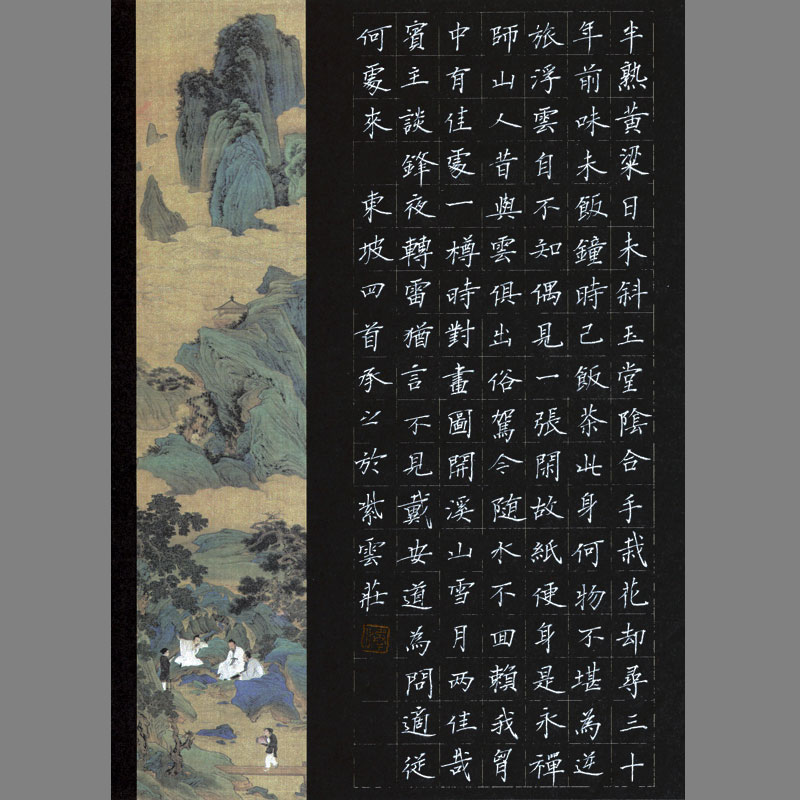 半熟黃粱日未斜玉堂陰合手栽花却尋三十
年前味未飯鐘時已飯茶此身何物不堪為逆
旅浮雲自不知偶見一張閑故紙便身是永禪
師山人昔與雲俱出俗駕今隨水不回賴我胷
中有佳處一樽時對畫圖開溪山雪月兩佳哉
賓主談鋒夜轉雷猶言不見戴安道為問適從
何處來 東坡四首承之於紫雲莊